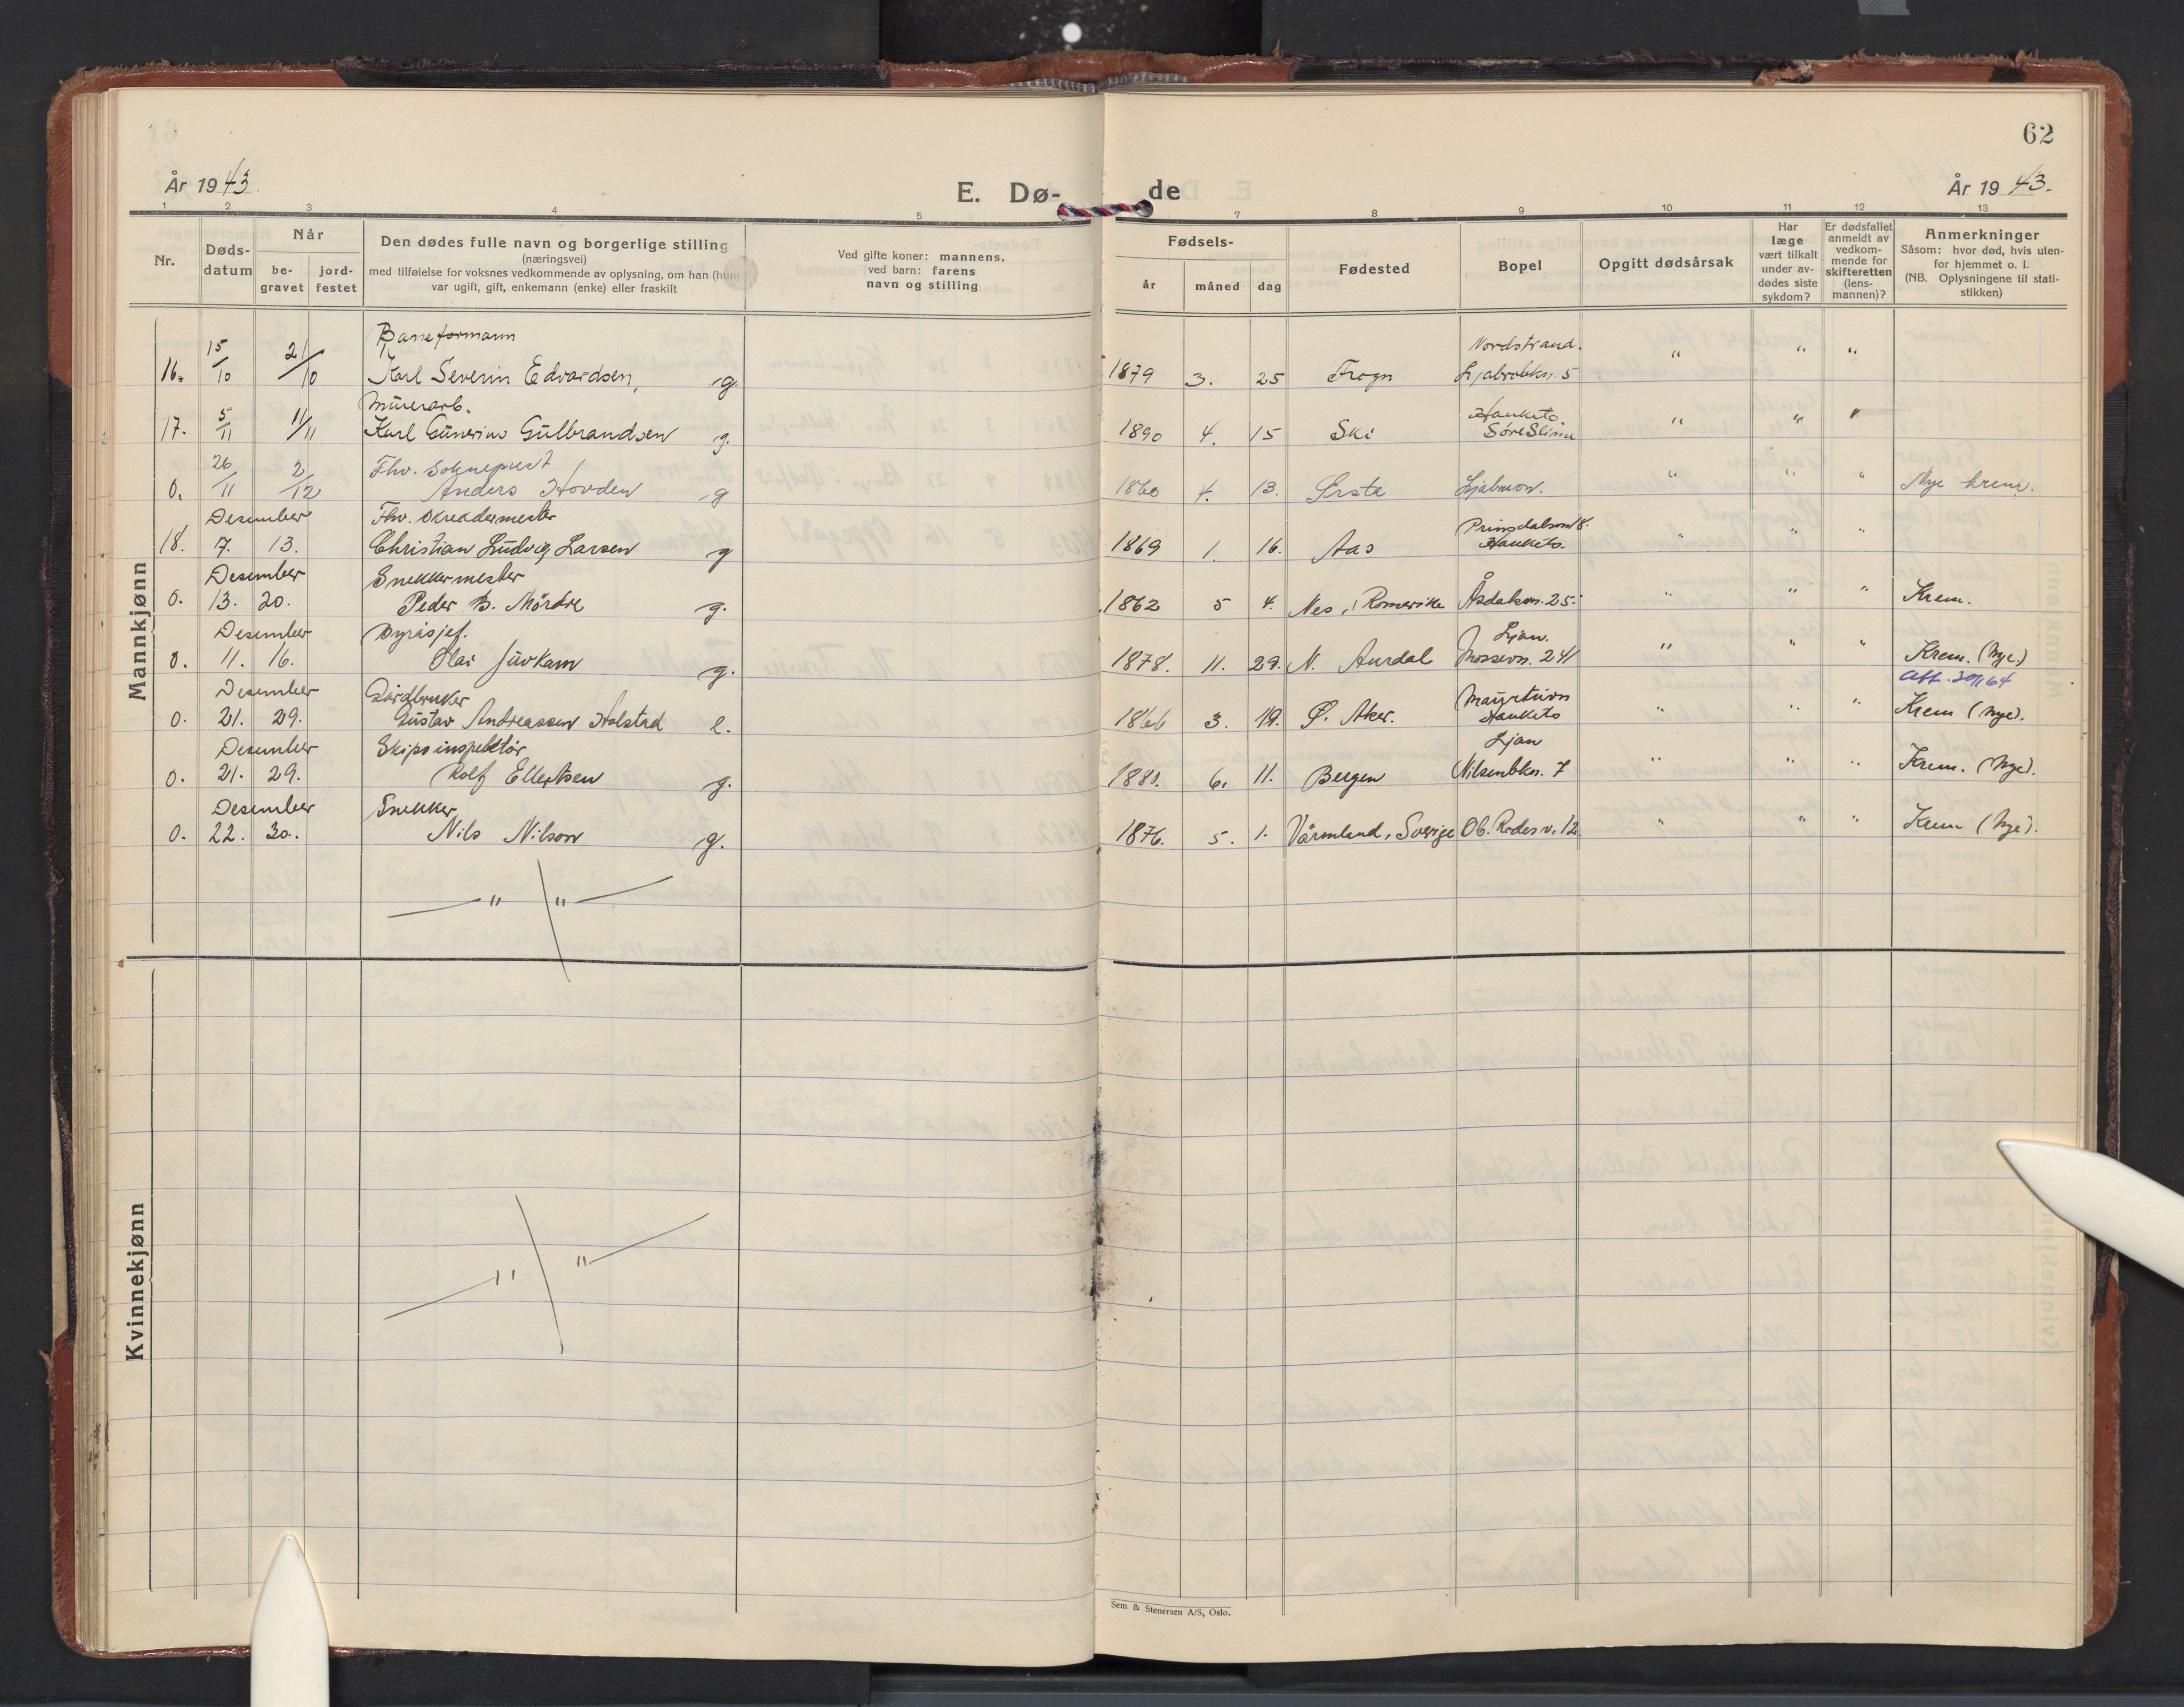 62
År 1943.
E. Dø-
de
År 1943.
1 2 3 4 5 7 8 9 10 11 12 13
Nr.
Døds-
datum
Når
be-
gravet
jord-
festet
Den dødes fulle navn og borgerlige stilling
(næringsvei)
med tilføielse for voksnes vedkommende av oplysning, om han (hun)
var ugift, gift, enkemann (enke) eller fraskilt
Ved gifte koner: mannens,
ved barn: farens
navn og stilling
Fødsels-
år måned dag
Fødested
Bopel
Opgitt dødsårsak
Har
læge
vært tilkalt
under av-
dødes siste
sykdom?
Er dødsfallet
anmeldt av
vedkom-
mende for
skifteretten
(lens-
mannen)?
Anmerkninger
Såsom: hvor død, hvis uten-
for hjemmet o. l.
(NB. Oplysningene til stati-
stikken)
Mannkjønn
Baneformann Nordstrand.
16. 15/10 21/10 Karl Severin Edvardsen, g. 1879 3. 25 Frogn 5 " " "
Murerarb. Hauketo
17. 5/11 11/11 Karl Gunerius Gulbrandsen g. 1890 4. 15 Ski Søre " " "
Fhv. Sokneprest
0. 26/11 2/12 Anders Hovden g 1860 4. 13. Ørsta " " " Nye krem.
Desember Fhv. skreddermester
18. 7. 13. Christian Ludvig Larsen g 1869 1. 16. Aas Hauketo. " " "
Desember Snekkermester
0. 13. 20. Peder B. Mørdre g. 1862 5 4. Nes, Romerike 25. " " " Krem.
Desember Byråsjef. Ljan.
0. 11. 16. Olai g. 1878. 11. 29. N. Aurdal Mossevn. 241 " " " Krem. (Nye.)
Desember Gårdbruker
0. 21. 29. Gustav Andreassen Holstad e. 1866 3. 19. Ø. Aker. Hauketo " " " Krem (Nye).
Desember Skipsinspektør Ljan
0. 21. 29. Rolf Ellertsen g. 1881. 6. 11. Bergen Nilsenbkn. 7 " " " Krem. (Nye).
Desember Snekker
0. 22. 30. Nils Nilson g. 1876. 5. 1. Värmland, Sverige Ob. Rodes v. 12 " " " Krem (Nye).
" "
Kvinnekjønn
" "
Sem & Stenersen A/S, Oslo.